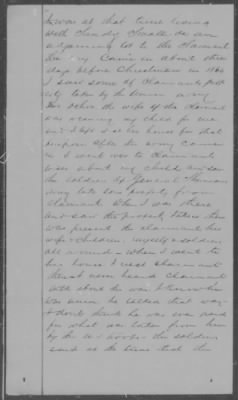 I was at that time living
with Sandy Small on an
adjoining lot to the Claimant
The army came in about three
days before Christmas in 1864
I saw some of Claimants prop
erty taken by the Union army
the wife of the claimant
was nursing my child for me
and I left it at her house for that
purpose after the army came
in I went over to claimants
to see about my child and saw
the soldiers of General Shermans
army take some property from
claimant. When I was there
and saw the property taken there
was present the claimant his
wife & children. myself & soldiers
all around. When I went to
his house I used
never heard claimant
talk about the war. I know he
was never he talked that way
I dont think he was ever paid
for what was taken from him
by the U.S. troops. the soldiers
said at the time that the